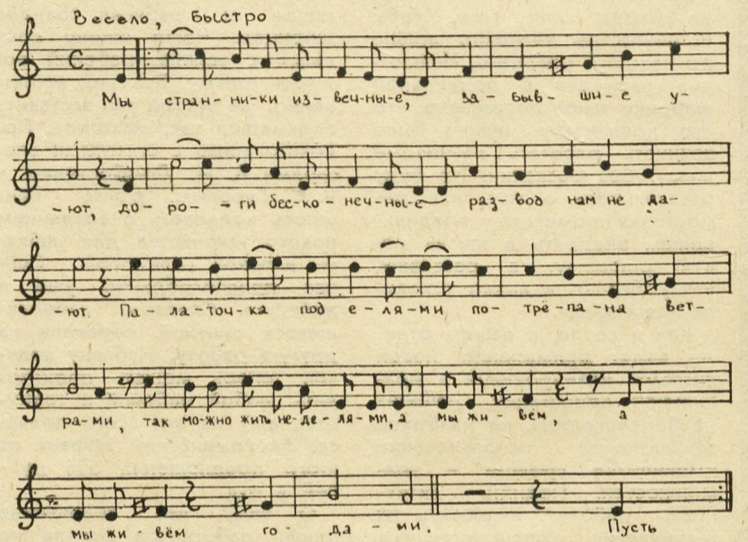 Весело, быстро
Мы стран- ни-ки из- веч-ны-е, за- быв- ши- е у-
-ют, до- ро- - ги бес-ко- неч-ны-е раз- вод нам не да-
ют. Па- ла- точ- ка под е- ля- ми по- трё- па- на вет-
ра- ми, так мо-жно жить не-де- ля- ми, а мы жи- вём, а
мы жи- вём го- да - ми. Пусть